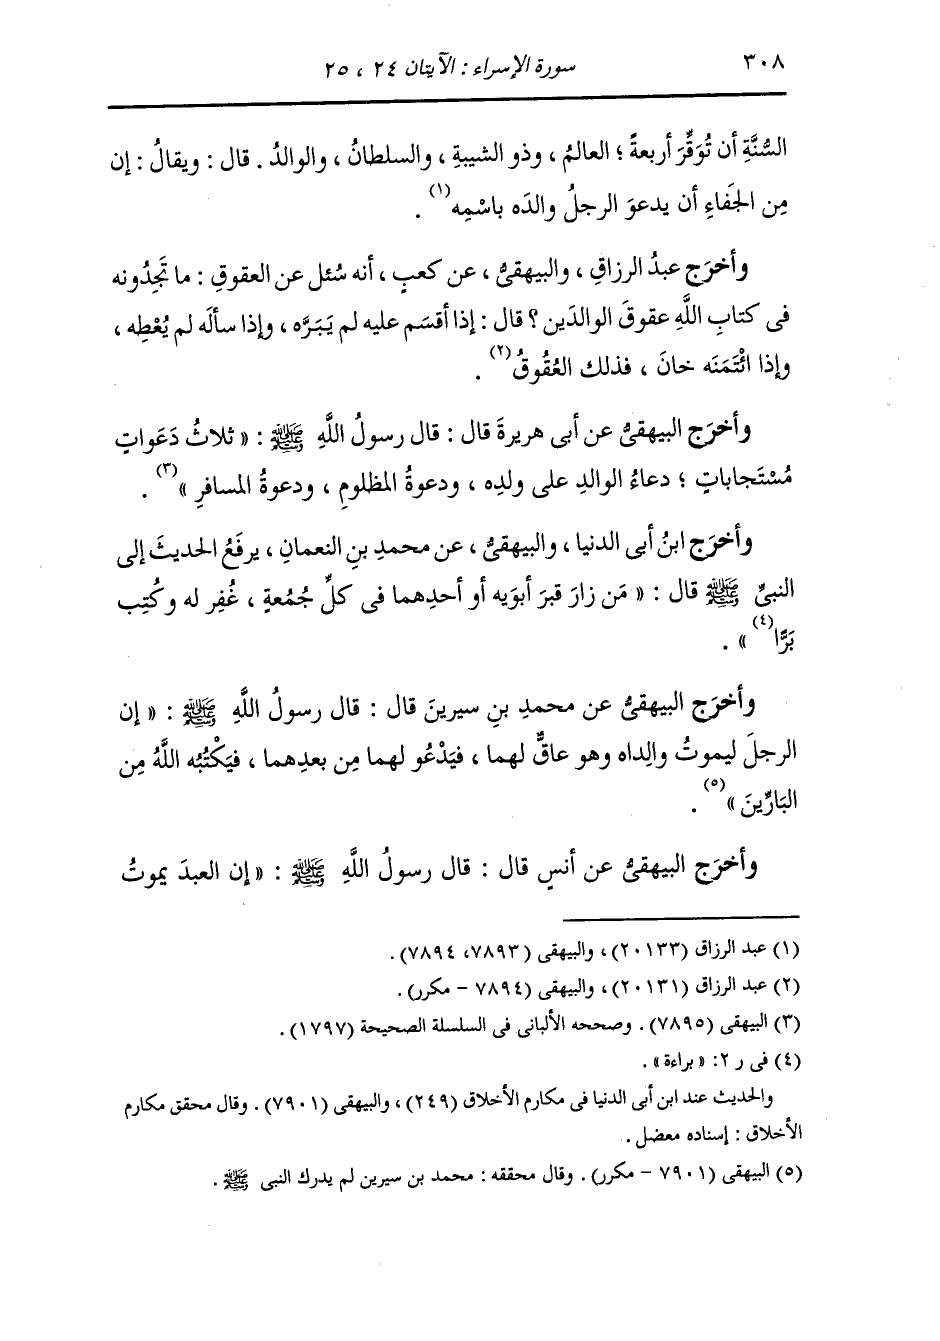 ٣٠٨
سورة الإسراء : الآيتان ٢٤ ، ٢٥
السُّنَّةِ أن تُوَقِّرَ أربعةً ؛ العالمُ ، وذو الشيبةِ ، والسلطانُ ، والوالدُ . قال : ويقالُ : إن
مِن الجَفاءِ أن يدعوَ الرجلُ والدَه باسْمِه(١) .
وأخرَج عبدُ الرزاقِ ، والبيهقىُّ ، عن كعبٍ ، أنه سُئل عن العقوقِ : ما تَجِدُونه
فى كتابِ اللَّهِ عقوقَ الوالدَين ؟ قال : إذا أقسَم عليه لم يَبَرَّه ، وإذا سألَه لم يُعْطِه ،
وإذا ائْتَمَنَه خانَ ، فذلك العُقُوقُ(٢) .
وأخرَج البيهقىُّ عن أبى هريرةَ قال : قال رسولُ اللَّهِ ﷺ : « ثلاثُ دَعَواتٍ
مُسْتَجاباتٍ ؛ دعاءُ الوالدِ على ولدِه ، ودعوةُ المظلومِ ، ودعوةُ المسافرِ »(٣) .
وأخرَج ابنُ أبى الدنيا ، والبيهقىُّ ، عن محمدِ بنِ النعمانِ ، يرفَعُ الحديثَ إلى
النبىِّ ﷺ قال : « مَن زارَ قبرَ أبوَيه أو أحدِهما فى كلِّ جُمُعةٍ ، غُفِر له وكُتِب
بَرًّا(٤) » .
وأخرَج البيهقىُّ عن محمدِ بنِ سيرينَ قال : قال رسولُ اللَّهِ ﷺ : « إن
الرجلَ ليموتُ والِداه وهو عاقٌّ لهما ، فيَدْعُو لهما مِن بعدِهما ، فيَكْتُبُه اللَّهُ مِن
البَارِّينَ »(٥) .
وأخرَج البيهقىُّ عن أنسٍ قال : قال رسولُ اللَّهِ ﷺ : « إن العبدَ يموتُ
(١) عبد الرزاق (٢٠١٣٣) ، والبيهقى (٧٨٩٣، ٧٨٩٤) .
(٢) عبد الرزاق (٢٠١٣١) ، والبيهقى (٧٨٩٤ - مكرر) .
(٣) البيهقى (٧٨٩٥) . وصححه الألبانى فى السلسلة الصحيحة (١٧٩٧) .
(٤) فى ر ٢: « براءة » .
والحديث عند ابن أبى الدنيا فى مكارم الأخلاق (٢٤٩) ، والبيهقى (٧٩٠١) . وقال محقق مكارم
الأخلاق : إسناده معضل .
(٥) البيهقى (٧٩٠١ - مكرر) . وقال محققه : محمد بن سيرين لم يدرك النبى ﷺ .